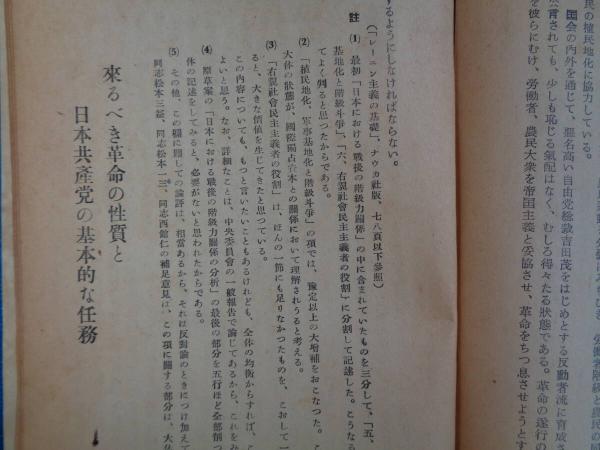 民の植民地化に協力している。
国会の内外を通じて、悪名高い自由党総裁吉田茂をはじめとする反動者流に育成さ
言されても、少しも恥じる氣配はなく、むしろ得々たる狀態である。革命の遂行の
を彼らにむけ、労働者、農民大衆を帝国主義と妥協させ、革命をちつ息させようとす
するようにしなければならない。
(「レーニン主義の基礎」ナウカ社版、七八頁以下参照)
註 (1) 最初「日本における戰後の階級力關係」の中に含まれていたものを三分して、「五、
基地化と階級斗爭」、「六、右翼社會民主主義者の役割」に分割して記述した。こうなる
てよく判ると思つたからである。
(2) 「植民地化、軍事基地化と階級斗爭」の項では、豫定以上の大增補をおこなつた。こ
大体の狀態が、國際獨占資本との關係において理解されうると考える。
(3) 「右翼社會民主主義者の役割」は、ほんの一節にも足りなかつたものを、こおして一
ると、大きな價値を生じてきたと思つている。
この內容についても、もつと言いたいこともあるけれども、全体の均衡からすれば、こ
よいと思う。なお、詳細なことは、中央委員會の一般報告で論じてあるから、これをみ
(4) 原草案の「日本における戰後の階級力關係の分析」の最後の部分を五行ほど全部削つ
体の記述をしてみると、必要がないと思われたからである。
(5) その他、この欄に關しての論評は、相當あるから、それは反對論のときにつけ加えて
同志松本三益、同志松本一三、同志西館仁の補足意見は、この項に關する部分は、大体
來るべき革命の性質と
日本共產党の基本的な任務